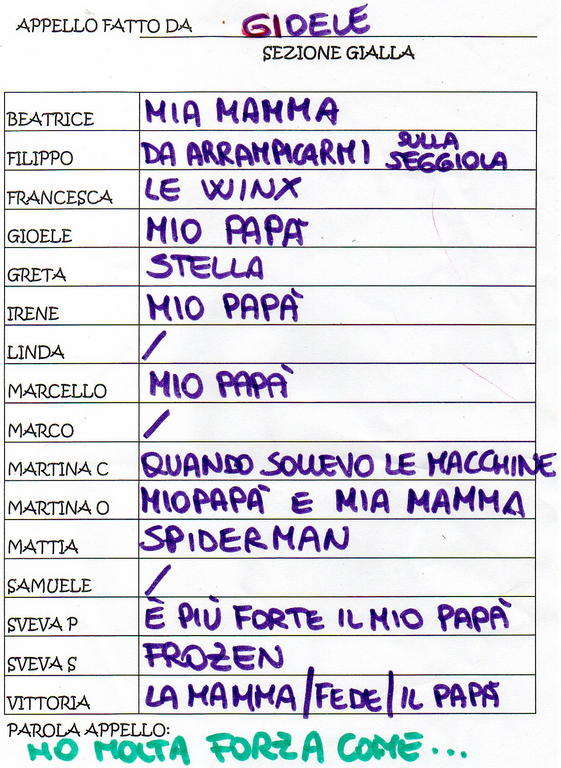 APPELLO FATTO DA GIOELE
SEZIONE GIALLA
BEATRICE MIA MAMMA
FILIPPO DA ARRAMPICARMI SULLA SEGGIOLA
FRANCESCA LE WINX
GIOELE MIO PAPÀ
GRETA STELLA
IRENE MIO PAPÀ
LINDA /
MARCELLO MIO PAPÀ
MARCO /
MARTINA C QUANDO SOLLEVO LE MACCHINE
MARTINA O MIO PAPÀ E MIA MAMMA
MATTIA SPIDERMAN
SAMUELE /
SVEVA P È PIÙ FORTE IL MIO PAPÀ
SVEVA S FROZEN
VITTORIA LA MAMMA/FEDE/IL PAPÀ
PAROLA APPELLO:
HO MOLTA FORZA COME...